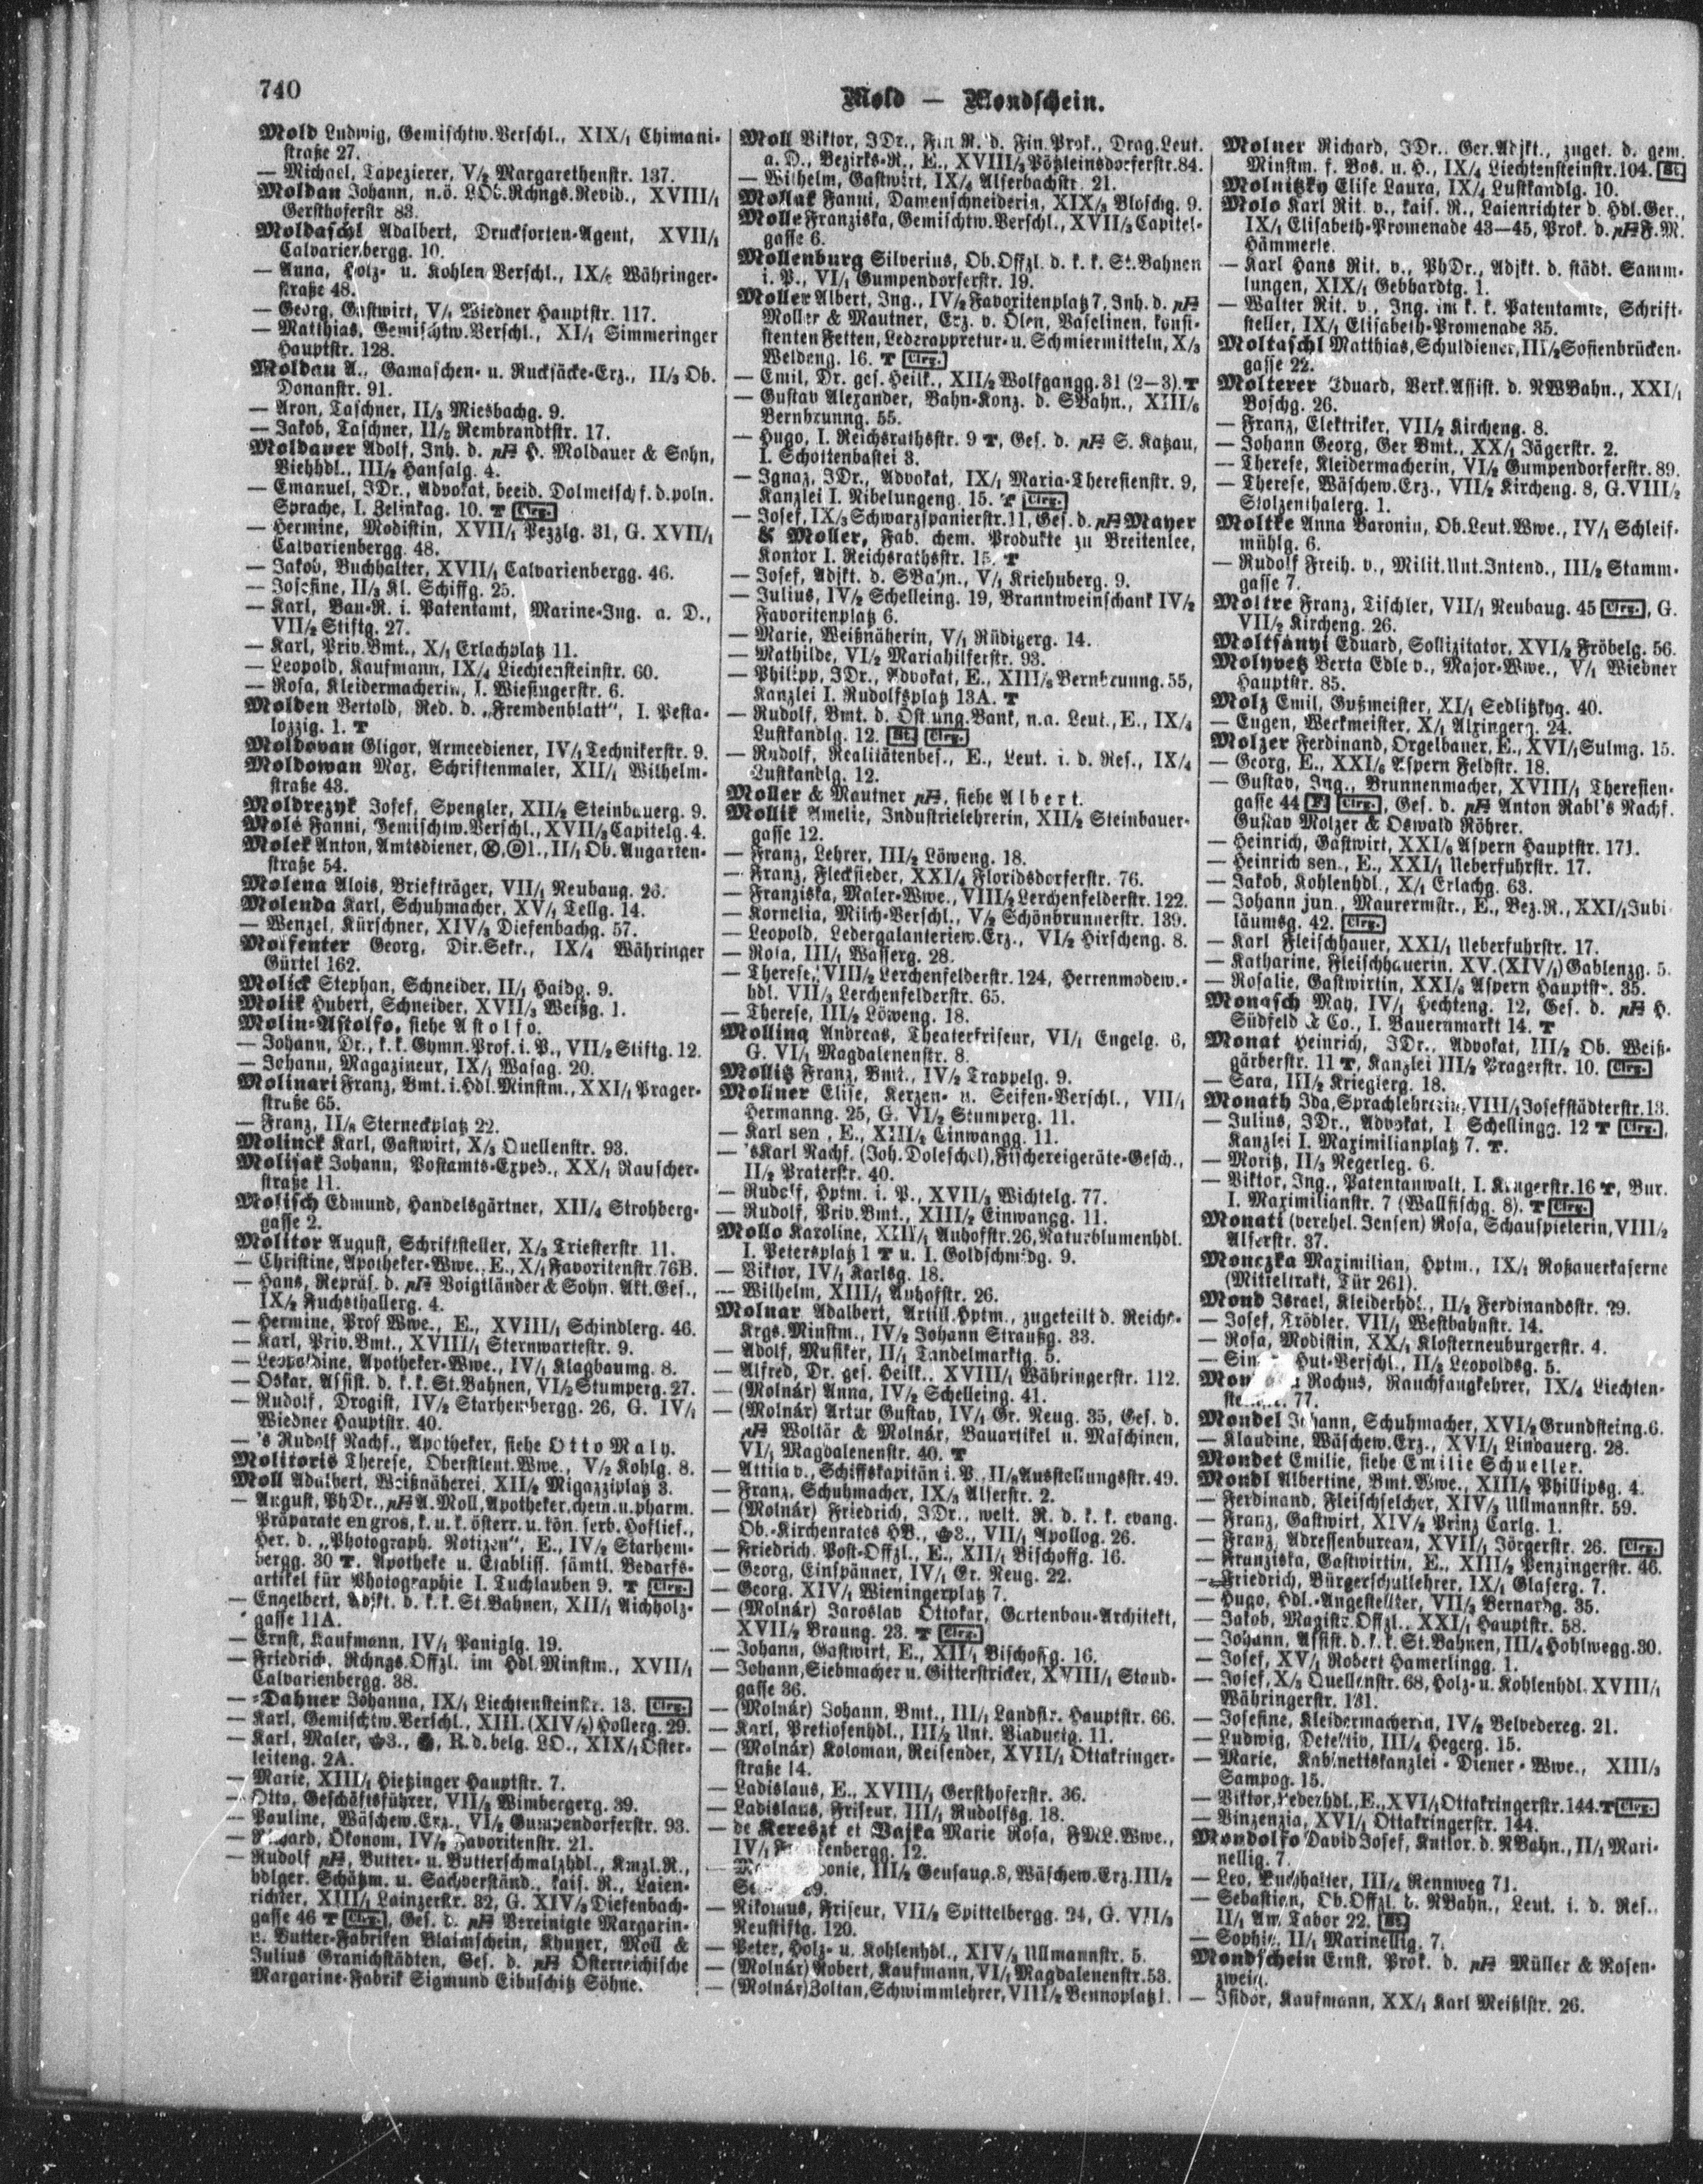 740
Mold — Mondschein.
Mold Ludwig, Gemischtw.Verschl., XIX/1 Chimani-
straße 27.
— Michael, Tapezierer, V/2 Margarethenstr. 137.
Moldan Johann, n.ö. LOb.Rchngs.Revid., XVIII/1
Gersthoferstr 83.
Moldaschl Adalbert, Drucksorten-Agent, XVII/1
Calvarienbergg. 10.
— Anna, Holz- u. Kohlen Verschl., IX/2 Währinger-
straße 48.
— Georg, Gastwirt, V/1 Wiedner Hauptstr. 117.
— Matthias, Gemischtw.Verschl., XI/1 Simmeringer
Hauptstr. 128.
Moldau A., Gamaschen- u. Rucksäcke-Erz., II/3 Ob.
Donaustr. 91.
— Aron, Taschner, II/3 Miesbachg. 9.
— Jakob, Taschner, II/2 Rembrandtstr. 17.
Moldauer Adolf, Inh. d. pH H. Moldauer & Sohn,
Viehhdl., III/2 Hansalg. 4.
— Emanuel, JDr., Advokat, beeid. Dolmetsch f. d. poln.
Sprache, I. Zelinkag. 10. T Clrg.
— Hermine, Modistin, XVII/1 Pezzlg. 31, G. XVII/1
Calvarienbergg. 48.
— Jakob, Buchhalter, XVII/1 Calvarienbergg. 46.
— Josefine, II/3 Kl. Schiffg. 25.
— Karl, Bau-R. i. Patentamt, Marine-Ing. a. D.,
VII/2 Stiftg. 27.
— Karl, Priv.Bmt., X/1 Erlachplatz 11.
— Leopold, Kaufmann, IX/4 Liechtensteinstr. 60.
— Rosa, Kleidermacherin, I. Wiesingerstr. 6.
Molden Bertold, Red. d. „Fremdenblatt“, I. Pesta-
lozzig. 1. T
Moldovan Gligor, Armeediener, IV/1 Technikerstr. 9.
Moldowan Max, Schriftenmaler, XII/1 Wilhelm-
straße 43.
Moldrezyk Josef, Spengler, XII/2 Steinbauerg. 9.
Mole Fanni, Gemischtw.Verschl., XVII/3 Capitelg. 4.
Molek Anton, Amtsdiener, II/1 Ob. Augarten-
straße 54.
Molena Alois, Briefträger, VII/1 Neubaug. 26.
Molenda Karl, Schuhmacher, XV/1 Tellg. 14.
— Wenzel, Kürschner, XIV/3 Diefenbachg. 57.
Molfenter Georg, Dir.Sekr., IX/4 Währinger
Gürtel 162.
Molick Stephan, Schneider, II/1 Haidg. 9.
Molik Hubert, Schneider, XVII/3 Weißg. 1.
Molin-Astolfo, siehe Astolfo.
— Johann, Dr., k.k. Gymn.Prof. i. P., VII/2 Stiftg. 12.
— Johann, Magazineur, IX/1 Wasag. 20.
Molinari Franz, Bmt. i. Hdl.Minstm., XXI/1 Prager-
straße 65.
— Franz, II/8 Sterneckplatz 22.
Molinck Karl, Gastwirt, X/3 Quellenstr. 93.
Molisak Johann, Postamts-Exped., XX/1 Rauscher-
straße 11.
Molisch Edmund, Handelsgärtner, XII/4 Strohberg-
gasse 2.
Molitor August, Schriftsteller, X/3 Triesterstr. 11.
— Christine, Apotheker-Wwe., E., X/1 Favoritenstr. 76B.
— Hans, Repräs. d. pH Voigtländer & Sohn. Akt.Ges.,
IX/2 Fuchsthallerg. 4.
— Hermine, Prof Wwe., E., XVIII/1 Schindlerg. 46.
— Karl, Priv.Bmt., XVIII/1 Sternwartestr. 9.
— Leopoldine, Apotheker-Wwe., IV/1 Klagbaumg. 8.
— Oskar, Assist. d. k.k. St.Bahnen, VI/2 Stumperg. 27.
— Rudolf, Drogist, IV/2 Starhembergg. 26, G. IV/1
Wiedner Hauptstr. 40.
— 's Rudolf Nachf., Apotheker, siehe Otto Maly.
Molitoris Therese, Oberstleut.Wwe., V/2 Kohlg. 8.
Moll Adalbert, Weißnäherei, XII/2 Migazziplatz 3.
— August, PhDr., pH A. Moll, Apotheker, chem. u. pharm.
Präparate en gros, k. u. k. österr. u. kön. serb. Hoflief.,
Her. d. „Photograph. Notizen“, E., IV/2 Starhem-
bergg. 30 T. Apotheke u. Etabliss. sämtl. Bedarfs-
artikel für Photographie I. Tuchlauben 9. T Clrg.
— Engelbert, Adjkt. d. k.k. St.Bahnen, XII/1 Aichholz-
gasse 11A.
— Ernst, Kaufmann, IV/1 Paniglg. 19.
— Friedrich, Rchngs.Offzl. im Hdl.Minstm., XVII/1
Calvarienbergg. 38.
— -Dahner Johanna, IX/1 Liechtensteinstr. 13. Clrg.
— Karl, Gemischtw.Verschl., XIII. (XIV/2) Hollerg. 29.
— Karl, Maler, 3., R. d. belg. LO., XIX/1 Öster-
leiteng. 2A.
— Marie, XIII/1 Hietzinger Hauptstr. 7.
— Otto, Geschäftsführer, VII/3 Wimbergerg. 39.
— Pauline, Wäschew.Erz., VI/2 Gumpendorferstr. 93.
— Ökonom, IV/2 Favoritenstr. 21.
— Rudolf pH, Butter- u. Butterschmalzhdl., Kmzl.R.,
hdlger. Schätzm. u. Sachverständ., kais. R., Laien-
richter, XIII/1 Lainzerstr. 32, G. XIV/3 Diefenbach-
gasse 46 T Clrg., Ges. d. pH Vereinigte Margarin-
u. Butter-Fabriken Blaimschein, Khuner, Moll &
Julius Granichstädten, Ges. d. pH Österreichische
Margarine-Fabrik Sigmund Eibuschitz Söhne.
Moll Viktor, JDr., Fin R. d. Fin.Prok., Drag.Leut.
a. D., Bezirks-R., E., XVIII/3 Pötzleinsdorferstr. 84.
— Wilhelm, Gastwirt, IX/4 Alserbachstr. 21.
Mollak Fanni, Damenschneiderin, XIX/3 Bloschg. 9.
Molle Franziska, Gemischtw.Verschl., XVII/3 Capitel-
gasse 6.
Mollenburg Silverius, Ob.Offzl. d. k.k. St.Bahnen
i. P., VI/1 Gumpendorferstr. 19.
Moller Albert, Ing., IV/2 Favoritenplatz 7, Inh. d. pH
Moller & Mautner, Erz. v. Ölen, Vaselinen, konsi-
stenten Fetten, Lederappretur- u. Schmiermitteln, X/3
Weldeng. 16. T Clrg.
— Emil, Dr. ges. Heilk., XII/2 Wolfgangg. 31 (2—3). T
— Gustav Alexander, Bahn-Konz. d. SBahn., XIII/6
Bernbrunng. 55.
— Hugo, I. Reichsrathsstr. 9 T, Ges. d. pH S. Katzau,
I. Schottenbastei 3.
— Ignaz, JDr., Advokat, IX/1 Maria-Theresienstr. 9,
Kanzlei I. Nibelungeng. 15. T Clrg.
— Josef, IX/3 Schwarzspanierstr. 11, Ges. d. pH Mayer
& Moller, Fab. chem. Produkte zu Breitenlee,
Kontor I. Reichsrathsstr. 15. T
— Josef, Adjkt. d. SBahn., V/1 Kriehuberg. 9.
— Julius, IV/2 Schelleing. 19, Branntweinschank IV/2
Favoritenplatz 6.
— Marie, Weißnäherin, V/1 Rüdigerg. 14.
— Mathilde, VI/2 Mariahilferstr. 93.
— Philipp, JDr., Advokat, E., XIII/6 Bernbrunng. 55,
Kanzlei I. Rudolfsplatz 13A. T
— Rudolf, Bmt. d. Öst.ung.Bank, n.a. Leut., E., IX/4
Lustkandlg. 12. St. Clrg.
— Rudolf, Realitätenbes., E., Leut. i. d. Res., IX/4
Lustkandlg. 12.
Moller & Mautner pH, siehe Albert.
Mollik Amelie, Industrielehrerin, XII/2 Steinbauer-
gasse 12.
— Franz, Lehrer, III/2 Löweng. 18.
— Franz, Flecksieder, XXI/4 Floridsdorferstr. 76.
— Franziska, Maler-Wwe., VIII/2 Lerchenfelderstr. 122.
— Kornelia, Milch-Verschl., V/2 Schönbrunnerstr. 139.
— Leopold, Ledergalanteriew.Erz., VI/2 Hirscheng. 8.
— Rosa, III/1 Wasserg. 28.
— Therese, VIII/2 Lerchenfelderstr. 124, Herrenmodew.-
hdl. VII/3 Lerchenfelderstr. 65.
— Therese, III/2 Löweng. 18.
Molling Andreas, Theaterfriseur, VI/1 Engelg. 6,
G. VI/1 Magdalenenstr. 8.
Mollitz Franz, Bmt., IV/2 Trappelg. 9.
Mollner Elise, Kerzen- u. Seifen-Verschl., VII/1
Hermanng. 25, G. VI/2 Stumperg. 11.
— Karl sen, E., XIII/2 Einwangg. 11.
— 's Karl Nachf. (Joh. Doleschel), Fischereigeräte-Gesch.,
II/2 Praterstr. 40.
— Rudolf, Hptm. i. P., XVII/3 Wichtelg. 77.
— Rudolf, Priv.Bmt., XIII/2 Einwangg. 11.
Mollo Karoline, XIII/1 Auhofstr. 26, Naturblumenhdl.
I. Petersplatz 1 T u. I. Goldschmidg. 9.
— Viktor, IV/1 Karlsg. 18.
— Wilhelm, XIII/1 Auhofstr. 26.
Molnar Adalbert, Artill.Hptm., zugeteilt d. Reichs-
Krgs.Minstm., IV/2 Johann Straußg. 33.
— Adolf, Musiker, II/1 Tandelmarktg. 5.
— Alfred, Dr. ges. Heilk., XVIII/1 Währingerstr. 112.
— (Molnár) Anna, IV/2 Schelleing. 41.
— (Molnár) Artur Gustav, IV/1 Gr. Neug. 35, Ges. d.
pH Woltär & Molnár, Bauartikel u. Maschinen,
VI/1 Magdalenenstr. 40. T
— Attila v., Schiffskapitän i. P., II/8 Ausstellungsstr. 49.
— Franz, Schuhmacher, IX/3 Alserstr. 2.
— (Molnár) Friedrich, JDr., welt. R. d. k.k. evang.
Ob.-Kirchenrates HB., 3., VII/1 Apollog. 26.
— Friedrich, Post-Offzl., E., XII/1 Bischoffg. 16.
— Georg, Einspänner, IV/1 Gr. Neug. 22.
— Georg, XIV/1 Wieningerplatz 7.
— (Molnár) Jaroslav Ottokar, Gartenbau-Architekt,
XVII/2 Braung. 23. T Clrg.
— Johann, Gastwirt, E., XII/1 Bischoffg. 16.
— Johann, Siebmacher u. Gitterstricker, XVIII/1 Staud-
gasse 36.
— (Molnár) Johann, Bmt., III/1 Landstr. Hauptstr. 66.
— Karl, Pretiosenhdl., III/2 Unt. Viaductg. 11.
— (Molnár) Koloman, Reisender, XVII/1 Ottakringer-
straße 14.
— Ladislaus, E., XVIII/1 Gersthoferstr. 36.
— Ladislaus, Friseur, III/1 Rudolfsg. 18.
— de Kereszt et Vajka Marie Rosa, FML.Wwe.,
IV/1 12.
— III/2 Geusaug. 8, Wäschew.Erz. III/2
— Nikolaus, Friseur, VII/2 Spittelbergg. 24, G. VII/3
Neustiftg. 120.
— Peter, Holz- u. Kohlenhdl., XIV/3 Ullmannstr. 5.
— (Molnár) Robert, Kaufmann, VI/1 Magdalenenstr. 53.
— (Molnár) Zoltan, Schwimmlehrer, VIII/2 Bennoplatz 1.
Molner Richard, JDr., Ger.Adjkt., zuget. d. gem.
Minstm. f. Bos. u. H., IX/4 Liechtensteinstr. 104. St.
Molnitzky Elise Laura, IX/4 Lustkandlg. 10.
Molo Karl Rit. v., kais. R., Laienrichter d. Hdl.Ger.,
IX/1 Elisabeth-Promenade 43—45, Prok. d. pH F. M.
Hämmerle.
— Karl Hans Rit. v., PhDr., Adjkt. d. städt. Samm-
lungen, XIX/1 Gebhardtg. 1.
— Walter Rit. v., Ing. im k.k. Patentamte, Schrift-
steller, IX/1 Elisabeth-Promenade 35.
Moltaschl Matthias, Schuldiener, III/2 Sofienbrücken-
gasse 22.
Molterer Eduard, Verk.Assist. d. NWBahn., XXI/1
Boschg. 26.
— Franz, Elektriker, VII/2 Kircheng. 8.
— Johann Georg, Ger Bmt., XX/1 Jägerstr. 2.
— Therese, Kleidermacherin, VI/2 Gumpendorferstr. 89.
— Therese, Wäschew.Erz., VII/2 Kircheng. 8, G. VIII/2
Stolzenthalerg. 1.
Moltke Anna Baronin, Ob.Leut.Wwe., IV/1 Schleif-
mühlg. 6.
— Rudolf Freih. v., Milit.Unt.Intend., III/2 Stamm-
gasse 7.
Moltre Franz, Tischler, VII/1 Neubaug. 45 Clrg., G.
VII/2 Kircheng. 26.
Moltsányi Eduard, Sollizitator, XVI/2 Fröbelg. 56.
Molyvetz Berta Edle v., Major-Wwe., V/1 Wiedner
Hauptstr. 85.
Molz Emil, Gußmeister, XI/1 Sedlitzkyg. 40.
— Eugen, Werkmeister, X/1 Alxingerg. 24.
Molzer Ferdinand, Orgelbauer, E., XVI/1 Sulmg. 15.
— Georg, E., XXI/6 Aspern Feldstr. 18.
— Gustav, Ing., Brunnenmacher, XVIII/1 Theresien-
gasse 44 F. Clrg., Ges. d. pH Anton Rabl's Nachf.
Gustav Molzer & Oswald Röhrer.
— Heinrich, Gastwirt, XXI/6 Aspern Hauptstr. 171.
— Heinrich sen., E., XXI/1 Ueberfuhrstr. 17.
— Jakob, Kohlenhdl., X/1 Erlachg. 63.
— Johann jun., Maurermstr., E., Bez.R., XXI/1 Jubi-
läumsg. 42. Clrg.
— Karl Fleischhauer, XXI/1 Ueberfuhrstr. 17.
— Katharine, Fleischhauerin, XV. (XIV/1) Gablenzg. 5.
— Rosalie, Gastwirtin, XXI/6 Aspern Hauptstr. 35.
Monasch May, IV/1 Hechteng. 12, Ges. d. pH H.
Südfeld & Co., I. Bauernmarkt 14. T
Monat Heinrich, JDr., Advokat, III/2 Ob. Weiß-
gärberstr. 11 T, Kanzlei III/2 Pragerstr. 10. Clrg.
— Sara, III/2 Krieglerg. 18.
Monath Ida, Sprachlehrerin, VIII/1 Josefstädterstr. 13.
— Julius, JDr., Advokat, I Schellingg. 12 T Clrg.,
Kanzlei I. Maximilianplatz 7. T.
— Moritz, II/3 Negerleg. 6.
— Viktor, Ing., Patentanwalt, I. Krugerstr. 16 T, Bur.
I. Maximilianstr. 7 (Wallfischg. 8). T Clrg.
Monati (verehel. Jensen) Rosa, Schauspielerin, VIII/2
Alserstr. 37.
Monczka Maximilian, Hptm., IX/1 Roßauerkaserne
(Mitteltrakt, Tür 261).
Mond Israel, Kleiderhdl., II/2 Ferdinandsstr. 29.
— Josef, Trödler, VII/1 Westbahnstr. 14.
— Rosa, Modistin, XX/1 Klosterneuburgerstr. 4.
— Hut-Verschl., II/2 Leopoldsg. 5.
Rochus, Rauchfangkehrer, IX/4 Liechten-
77.
Mondel Johann, Schuhmacher, XVI/2 Grundsteing. 6.
— Klaudine, Wäschew.Erz., XVI/1 Lindauerg. 28.
Mondet Emilie, siehe Emilie Schueller.
Mondl Albertine, Bmt.Wwe., XIII/2 Phillipsg. 4.
— Ferdinand, Fleischselcher, XIV/2 Ullmannstr. 59.
— Franz, Gastwirt, XIV/2 Prinz Carlg. 1.
— Franz, Adressenbureau, XVII/1 Jörgerstr. 26. Clrg.
— Franziska, Gastwirtin, E., XIII/2 Penzingerstr. 46.
— Friedrich, Bürgerschullehrer, IX/1 Glaserg. 7.
— Hugo, Hdl.-Angestellter, VII/2 Bernardg. 35.
— Jakob, Magistr.Offzl., XXI/1 Hauptstr. 58.
— Johann, Assist. d. k.k. St.Bahnen, III/4 Hohlwegg. 30.
— Josef, XV/1 Robert Hamerlingg. 1.
— Josef, X/3 Quellenstr. 68, Holz- u. Kohlenhdl. XVIII/1
Währingerstr. 131.
— Josefine, Kleidermacherin, IV/2 Belvedereg. 21.
— Ludwig, Detektiv, III/4 Hegerg. 15.
— Marie, Kabinettskanzlei-Diener-Wwe., XIII/3
Sampog. 15.
— Viktor, Lederhdl., E., XVI/1 Ottakringerstr. 144. T Clrg.
— Vinzenzia, XVI/1 Ottakringerstr. 144.
Mondolfo David Josef, Kntlor. d. NBahn., II/1 Mari-
nellig. 7.
— Leo, Buchhalter, III/4 Rennweg 71.
— Sebastian, Ob.Offzl. d. NBahn., Leut. i. d. Res.,
II/1 Am Tabor 22. St.
— Sophie, II/1 Marinellig. 7.
Mondschein Ernst, Prok. d. pH Müller & Rosen-
zweig.
— Isidor, Kaufmann, XX/1 Karl Meißlstr. 26.